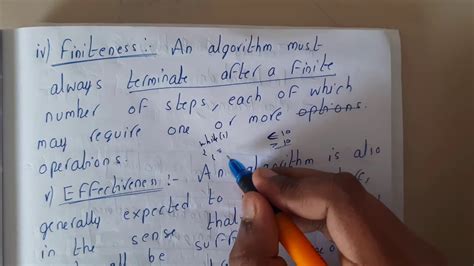 iv) Finiteness :- An algorithm must
always terminate after a finite
number of steps, each of which
may require one or more options.
operations.
while(1)
≤ 10
≥ 10
v) Effectiveness :- An algorithm is also
generally expected to
in the sense that
all be